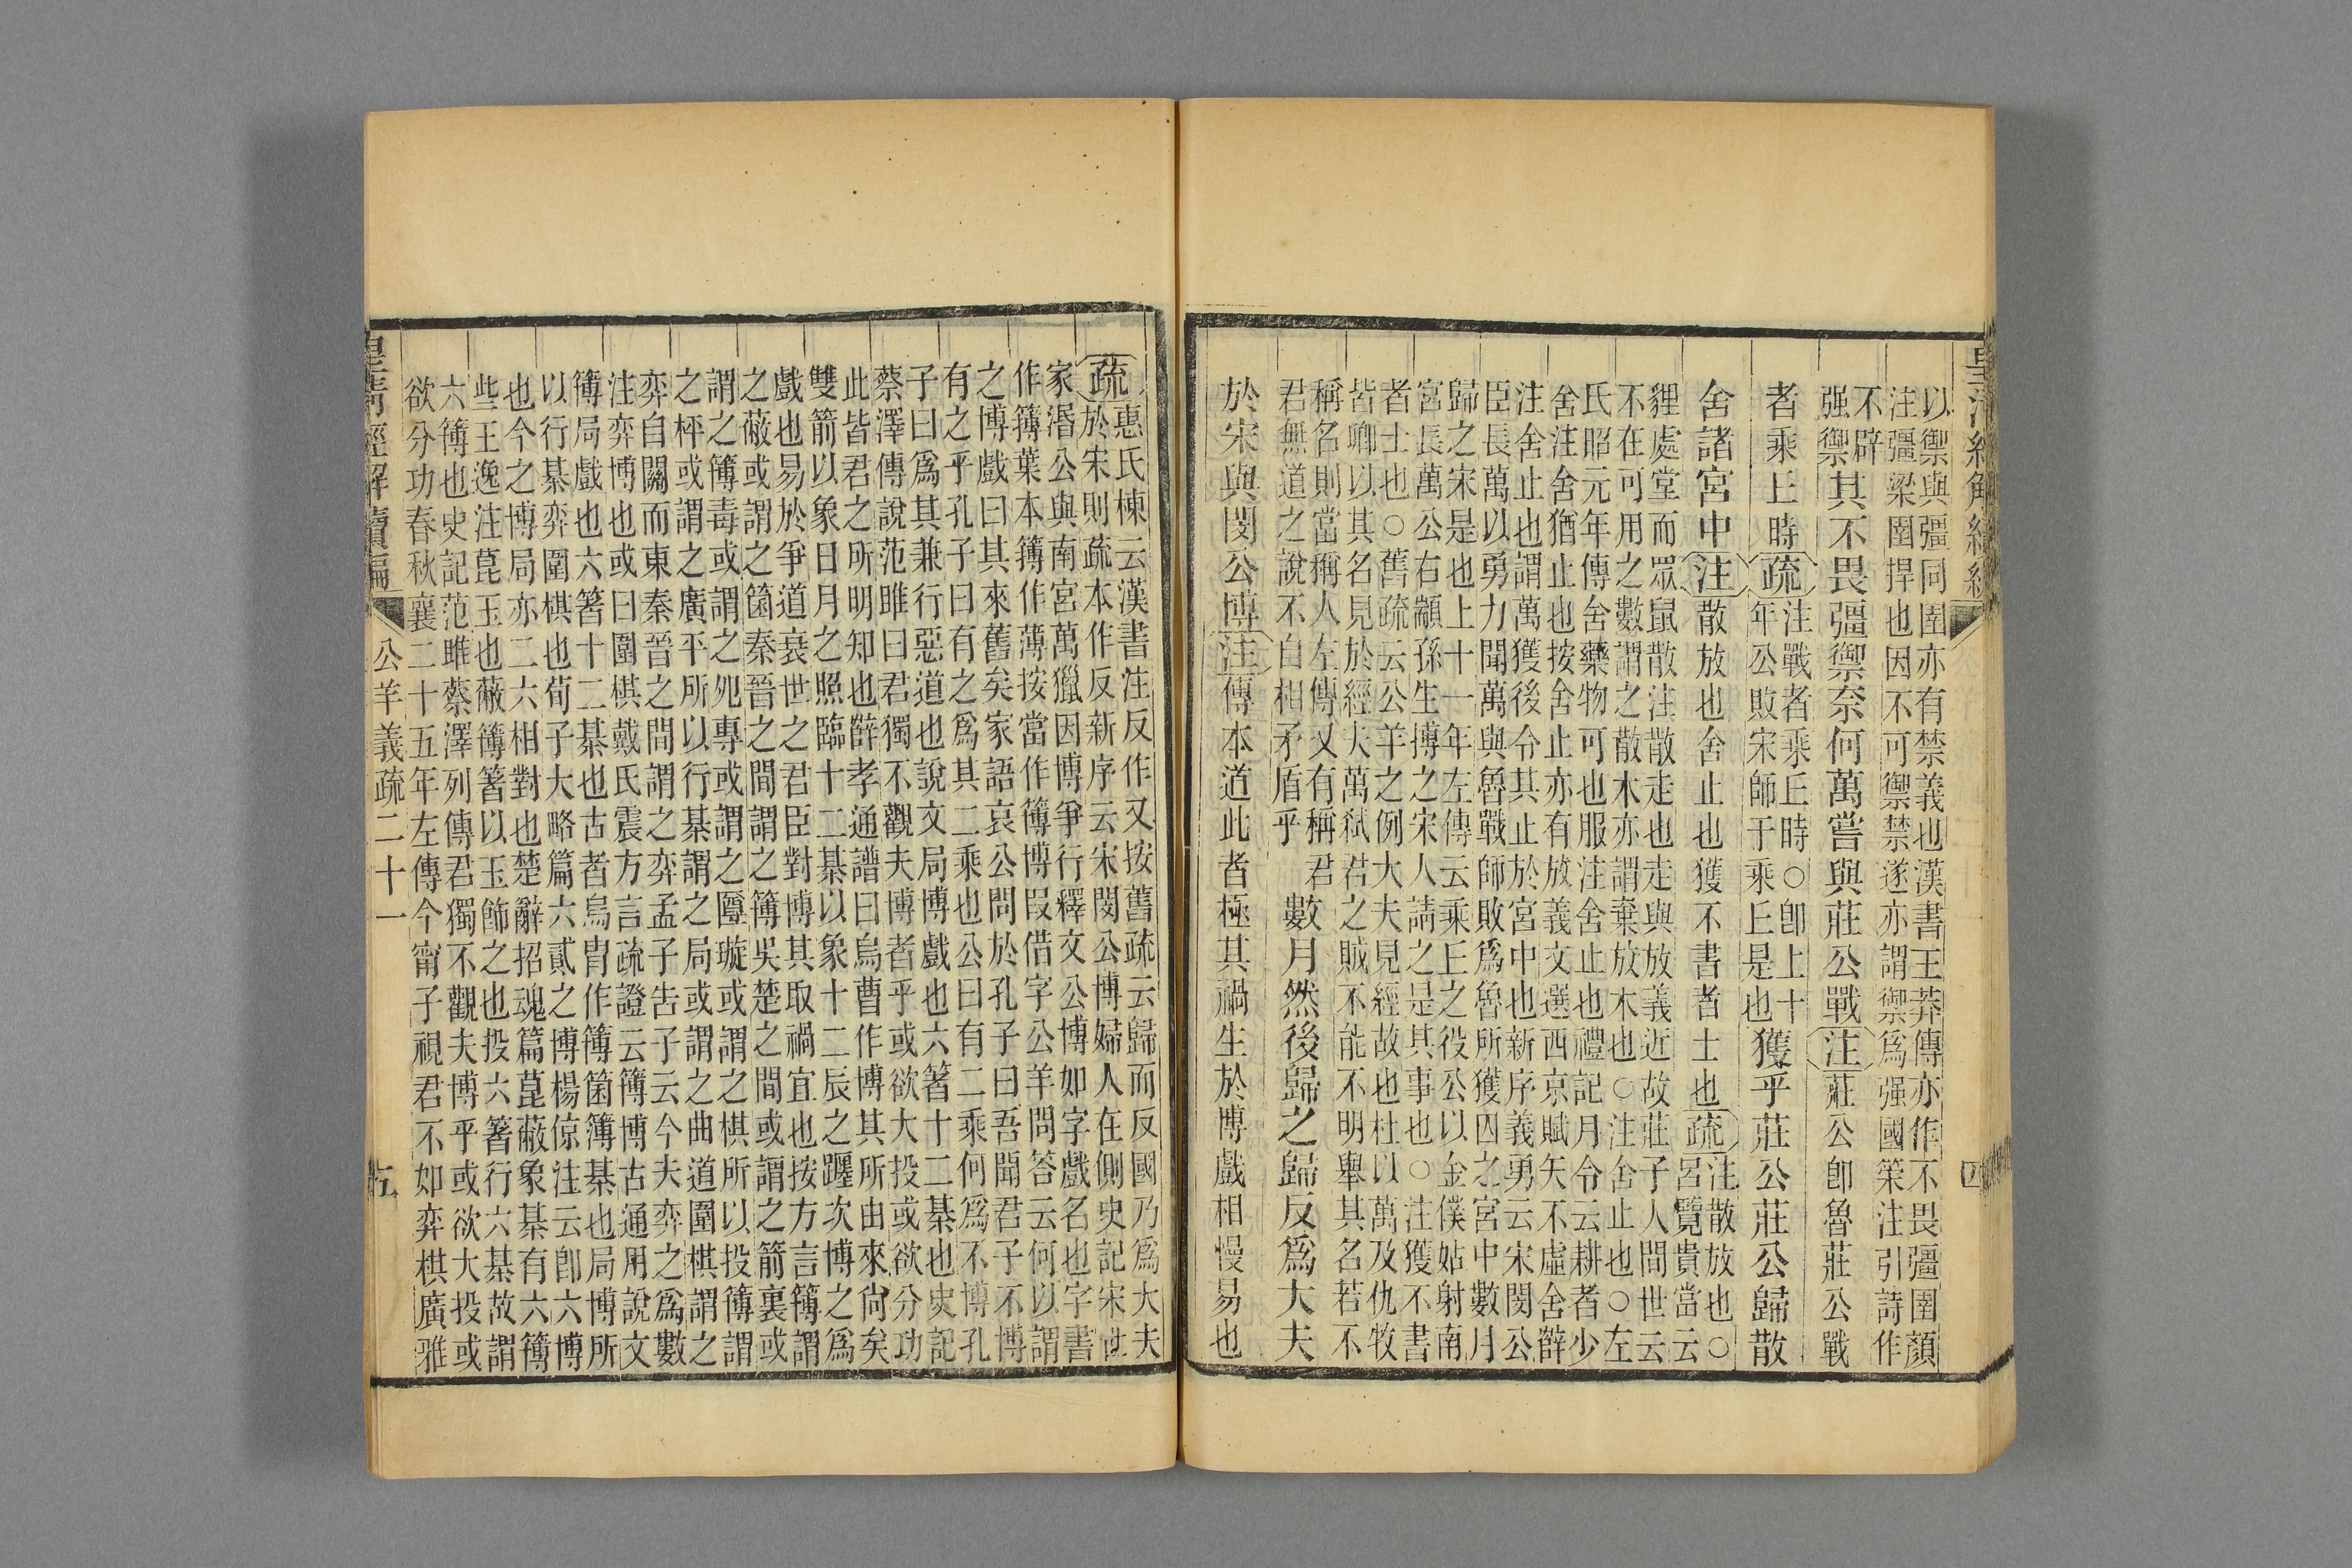 以禦與彊同圉亦有禁義也漢書王莽傳亦作不畏彊圉顏
注彊梁圉捍也因不可禦禁遂亦謂禦爲强國策注引詩作
不辟
强禦其不畏彊禦奈何萬嘗與莊公戰注莊公卽魯莊公戰
者乘丘時疏注戰者乘丘時○卽上十
年公敗宋師于乘丘是也獲乎莊公莊公歸散
舍諸宮中注散放也舍止也獲不書者士也疏注散放也○
呂覽貴當云
貍處堂而眾鼠散注散走也走與放義近故莊子人間世云
不在可用之數謂之散木亦謂棄放木也○注舍止也○左
氏昭元年傳舍藥物可也服注舍止也禮記月令云耕者少
舍注舍猶止也按舍止亦有放義文選西京賦矢不虛舍薛
注舍止也謂萬獲後令其止於宮中也新序義勇云宋閔公
臣長萬以勇力聞萬與魯戰師敗爲魯所獲囚之宮中數月
歸之宋是也上十一年左傳云乘丘之役公以金僕姑射南
宮長萬公右歂孫生搏之宋人請之是其事也○注獲不書
者士也○舊疏云公羊之例大夫見經故也杜以萬及仇牧
皆卿以其名見於經夫萬弒君之賊不能不明舉其名若不
稱名則當稱人左傳又有稱君
君無道之說不自相矛盾乎數月然後歸之歸反爲大夫
於宋與閔公博注傳本道此者極其禍生於博戲相慢易也
疏惠氏棟云漢書注反作又按舊疏云歸而反國乃爲大夫
於宋則疏本作反新序云宋閔公博婦人在側史記宋世
家湣公與南宮萬獵因博爭行釋文公博如字戲名也字書
作簿葉本簿作薄按當作簿博叚借字公羊問答云何以謂
之博戲曰其來舊矣家語哀公問於孔子曰吾聞君子不博
有之乎孔子曰有之爲其二乘也公曰有二乘何爲不博孔
子曰爲其兼行惡道也說文局博戲也六箸十二棊也史記
蔡澤傳說范雎曰君獨不觀夫博者乎或欲大投或欲分功
此皆君之所明知也薛孝通譜曰烏曹作博其所由來尙矣
雙箭以象日月之照臨十二棊以象十二辰之躔次博之爲
戲也易於爭道衰世之君臣對博其取禍宜也按方言簿謂
之蔽或謂之箘秦晉之間謂之簿吳楚之間或謂之箭裏或
謂之簿毒或謂之夗專或謂之匴璇或謂之棋所以投簿謂
之枰或謂之廣平所以行棊謂之局或謂之曲道圍棋謂之
弈自關而東秦晉之間謂之弈孟子告子云今夫弈之爲數
注弈博也或曰圍棋戴氏震方言疏證云簿博古通用說文
簿局戲也六箸十二棊也古者烏胄作簿箘簿棊也局博所
以行棊弈圍棋也荀子大略篇六貳之博楊倞注云卽六博
也今之博局亦二六相對也楚辭招魂篇菎蔽象棊有六簿
些王逸注菎玉也蔽簿箸以玉飾之也投六箸行六棊故謂
六簿也史記范雎蔡澤列傳君獨不觀夫博乎或欲大投或
欲分功春秋襄二十五年左傳今甯子視君不如弈棋廣雅
公羊義疏二十一